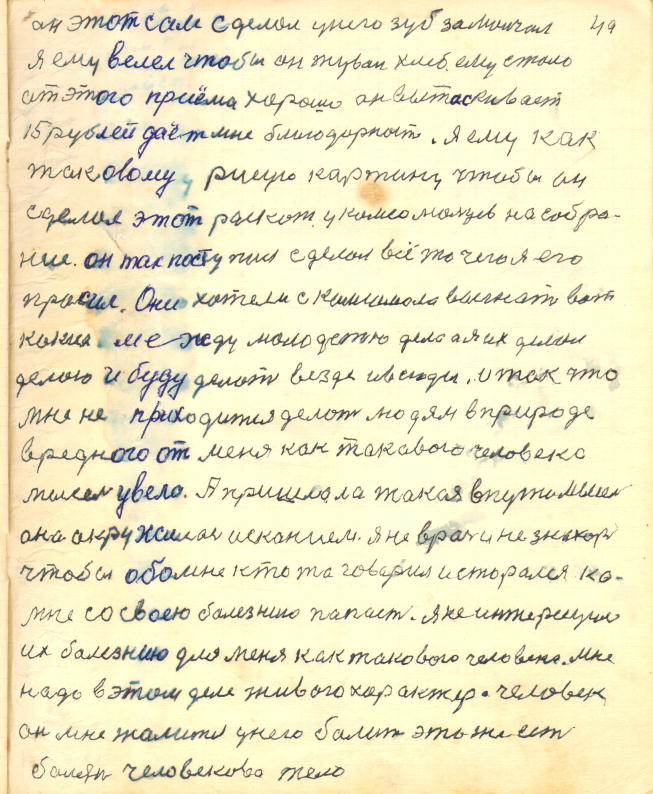 он этот сам сделал у него зуб замолчал 49
я ему велел чтобы он жувал хлеб. ему стало
от этого приёма хорошо он вытаскивает
15 рублей даёт мне благодарност. Я ему как
таковому, рисую картину чтобы он
сделал этот раскот у комсомольцев на собра-
нии. он так поступил сделал всё то чего я его
просил. Они хотели с комсомола выгнать вот
какие. между молодежю дела а я их делал
делаю и буду делать везде и всюды. и так что
мне не приходится делат людям в природе
вредного от меня как такавого человека
увело. А пришла такая
она окружилас исканием. я не врач и не знахор
чтобы обо мне кто то говорил и старался ко-
мне со своею болезнию папаст. я не интересуюс
их балезнию для меня как такового человека. Мне
надо в этом деле живого характер. человек
он мне жалится у него балит это же ест
балят человекова тело